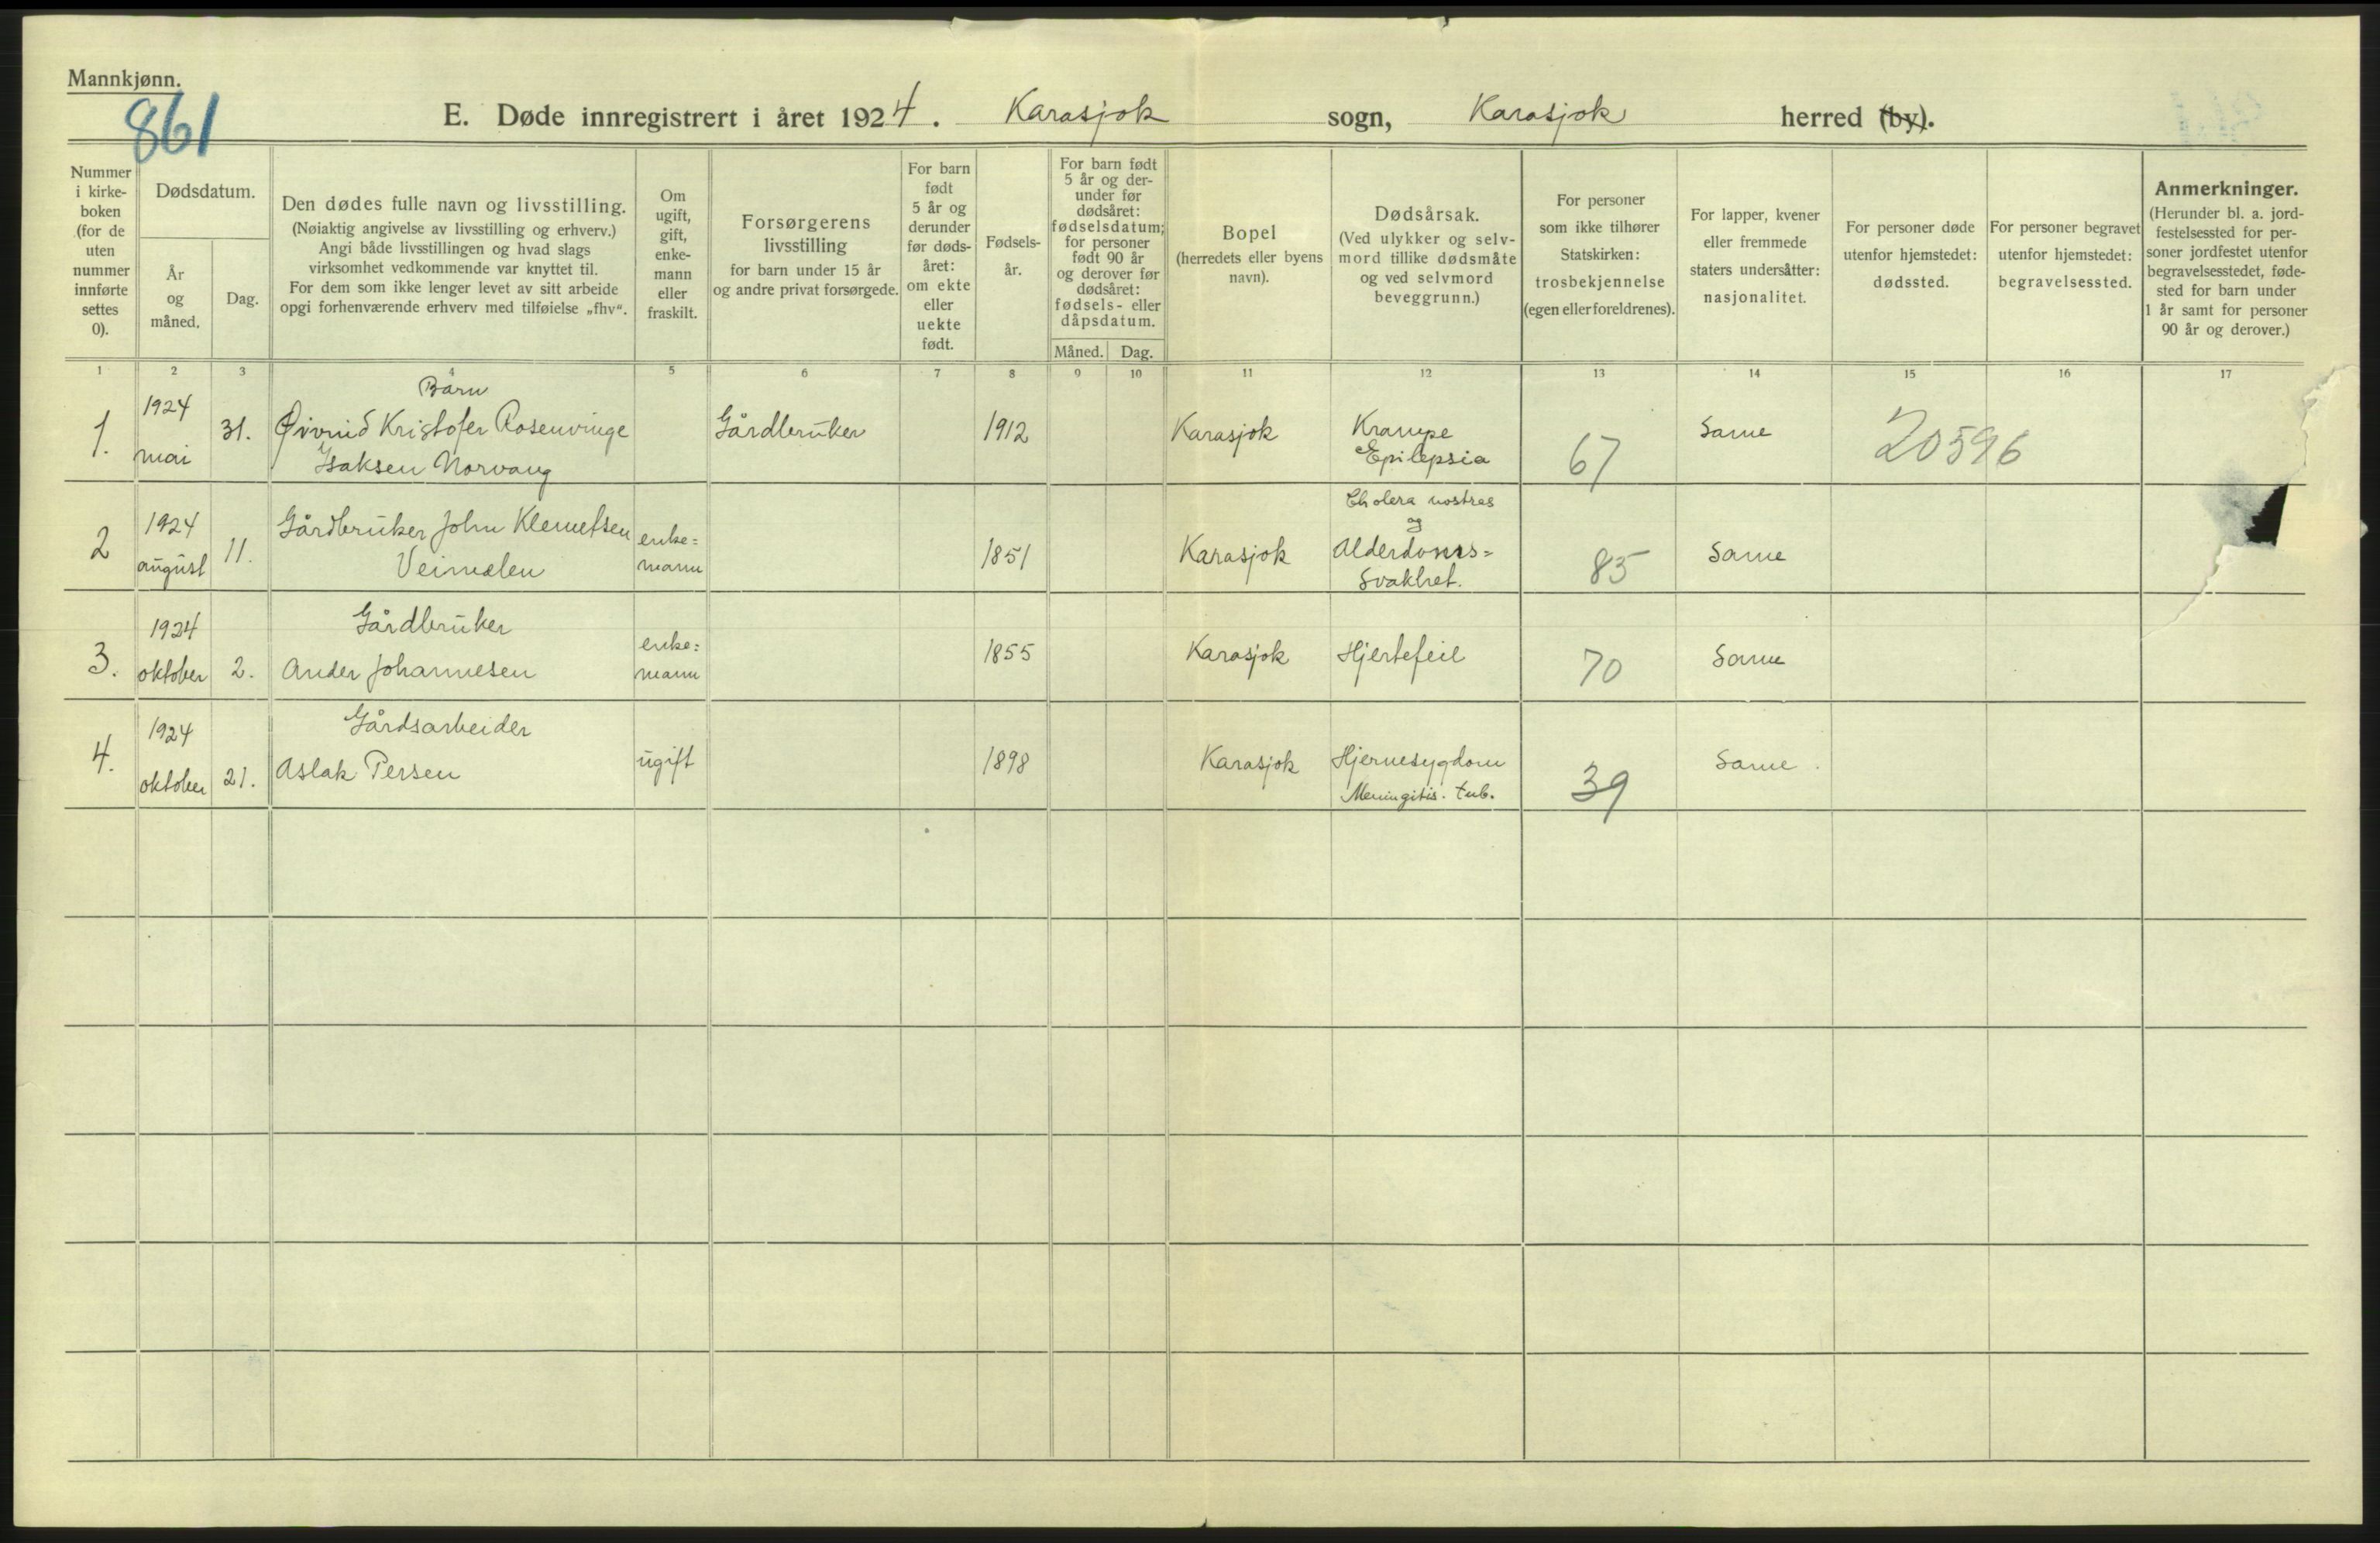 Mannkjønn.
861
E. Døde innregistrert i året 1924. Karasjok sogn, Karasjok herred (by).
Nummer
i kirke-
boken
(for de
uten
nummer
innførte
settes
0).
Dødsdatum.
År
og
måned.
Dag.
Den dødes fulle navn og livsstilling.
(Nøiaktig angivelse av livsstilling og erhverv.)
Angi både livsstillingen og hvad slags
virksomhet vedkommende var knyttet til.
For dem som ikke lenger levet av sitt arbeide
opgi forhenværende erhverv med tilføielse „fhv“.
Om
ugift,
gift,
enke-
mann
eller
fraskilt.
Forsørgerens
livsstilling
for barn under 15 år
og andre privat forsørgede.
For barn
født
5 år og
derunder
før døds-
året:
om ekte
eller
uekte
født.
Fødsels-
år.
For barn født
5 år og der-
under før
dødsåret:
fødselsdatum;
for personer
født 90 år
og derover før
dødsåret:
fødsels- eller
dåpsdatum.
Måned. Dag.
Bopel
(herredets eller byens
navn).
Dødsårsak.
(Ved ulykker og selv-
mord tillike dødsmåte
og ved selvmord
beveggrunn.)
For personer
som ikke tilhører
Statskirken:
trosbekjennelse
(egen eller foreldrenes).
For lapper, kvener
eller fremmede
staters undersåtter:
nasjonalitet.
For personer døde
utenfor hjemstedet:
dødssted.
For personer begravet
utenfor hjemstedet:
begravelsessted.
Anmerkninger.
(Herunder bl. a. jord-
festelsessted for per-
soner jordfestet utenfor
begravelsesstedet, føde-
sted for barn under
1 år samt for personer
90 år og derover.)
1 2 3 4 5 6 7 8 9 10 11 12 13 14 15 16 17
Barn
1. 1924 mai 31. Øivind Kristofer Rosenvinge Gårdbruker 1912 Karasjok Krampe 67 Same 20596
Isaksen Norvang Epilepsia
Cholera nostras
og
2 1924 august 11. Gårdbruker John Klemetsen enke= 1851 Karasjok Alderdoms= 85 Same
Veimælen mann Svakhet.
Gårdbruker
3. 1924 oktober 2. Ander Johannesen enke= mann 1855 Karasjok Hjertefeil 70 Same
Gårdsarbeider
4. 1924 oktober 21. Aslak Persen ugift 1898 Karasjok Hjernesygdom 39 Same.
Meningitis. tub.